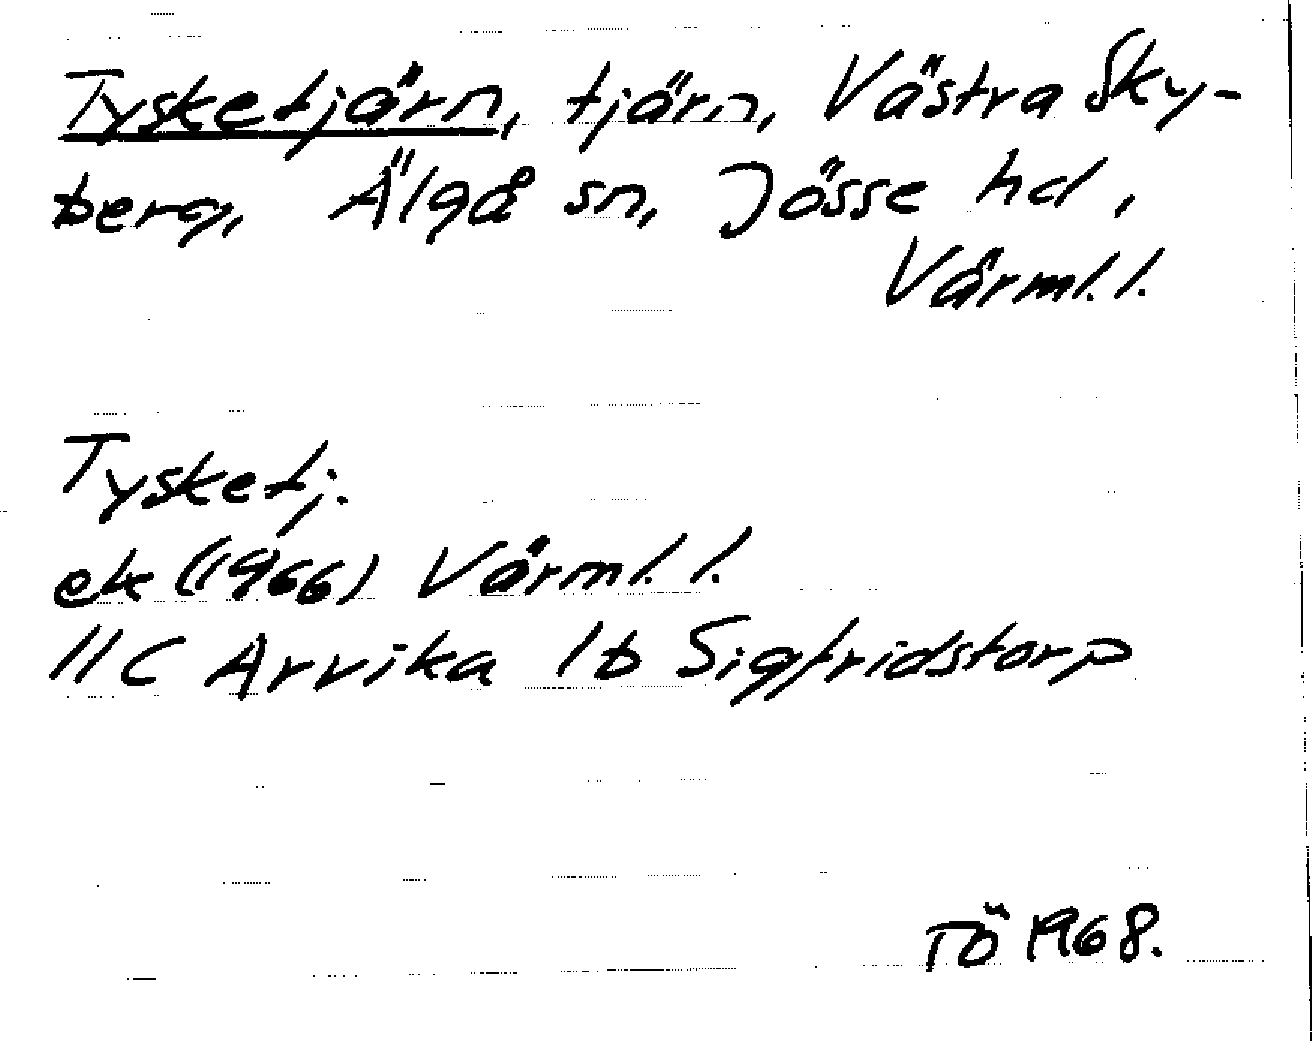 Tysketjärn, tjärn, Västra Sky-
berg, Älgå sn, Jösse hd,
Värml. l.
Tysketj.
ek (1966) Värml. l.
11C Arvika 1b Sigfridstorp
TÖ 1968.